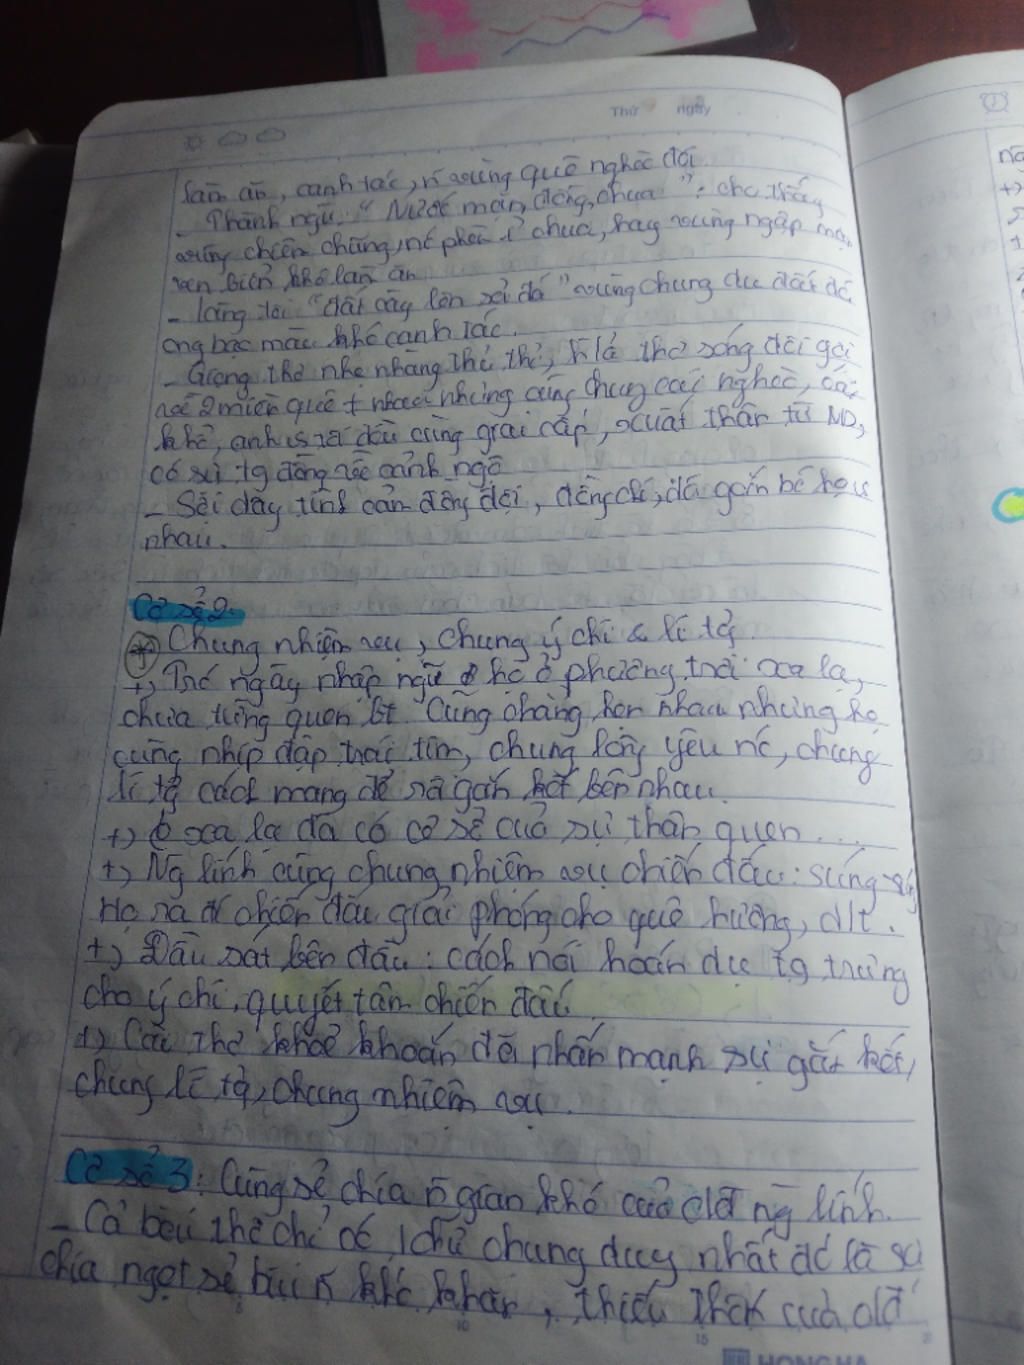 Thứ ngày
làm ăn, canh tác, n vùng quê nghèo đói.
- Thành ngữ: "Nước mặn, đồng chua": cho thấy
vùng chiêm chũng, nc phèn ì chua, hay vùng ngập mặn
ven biển khó làm ăn
- làng tôi "đất cày lên sỏi đá" vùng chung du đất đá
ong bạc màu khó canh tác.
- Giọng thơ nhẹ nhàng thủ thỉ, thơ sóng đôi gợi
về 2 miền quê ≠ nhau nhưng cùng chung cái nghèo, cái
khổ, anh tôi đều cùng giai cấp, xuất thân từ ND,
có sự tg đồng về cảnh ngộ
- Sợi dây tình cảm đồng đội, đồng chí, đã gắn bó họ vs
nhau.
Cơ sở 2.
* Chung nhiệm vụ, chung ý chí & lí tg
+, Trc ngày nhập ngũ họ ở phương trời xa lạ,
chưa từng quen bt. Cũng chẳng hẹn nhau nhưng họ
cùng nhịp đập trái tim, chung lòng yêu nc, chung
lí tg cách mạng để rồi gắn kết bên nhau.
+, xa lạ đã có cơ sở của sự thân quen...
+, Ng lính cùng chung nhiệm vụ chiến đấu: súng-súng
Họ ra đi chiến đấu giải phóng cho quê hương, đn.
+, Đầu sát bên đầu: cách nói hoán dụ tg trưng
cho ý chí, quyết tâm chiến đấu
+, Câu thơ khoẻ khoắn đã nhấn mạnh sự gắn kết,
chung lí tg, chung nhiệm vụ.
Cơ sở 3: Cùng sẻ chia n gian khó của cđ ng lính.
- Cả bài thơ chỉ có 1 chữ chung duy nhất đó là sự
chia ngọt sẻ bùi n khó khăn, thiếu thốn của cđ
10 15
HONG HA